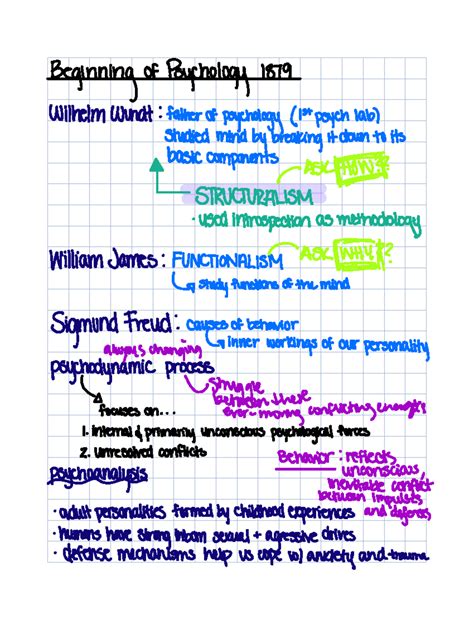 Beginning of Psychology 1879
Wilhelm Wundt: father of psychology (1st psych lab)
studied mind by breaking it down to its
basic components
ASK HOW?
STRUCTURALISM
· used introspection as methodology
ASK WHY?
William James: FUNCTIONALISM
study functions of the mind
Sigmund Freud: causes of behavior
inner workings of our personality
always changing
psychodynamic process
struggle
between these
ever-moving conflicting energies
focuses on...
1. internal & primarily unconscious psychological forces
2. unresolved conflicts
Behavior: reflects
unconscious,
inevitable conflict
between impulses
and defenses
psychoanalysis
· adult personalities formed by childhood experiences
· humans have strong inborn sexual + agressive drives
· defense mechanisms help us cope w/ anxiety and trauma